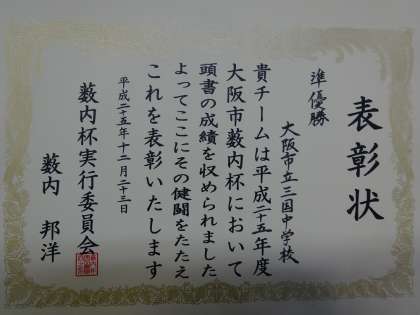 表彰状
準優勝
大阪市立三国中学校
貴チームは平成二十五年度
大阪市薮内杯において
頭書の成績を収められました
よってここにその健闘をたたえ
これを表彰いたします
平成二十五年十二月二十三日
薮内杯実行委員会
薮内 邦洋